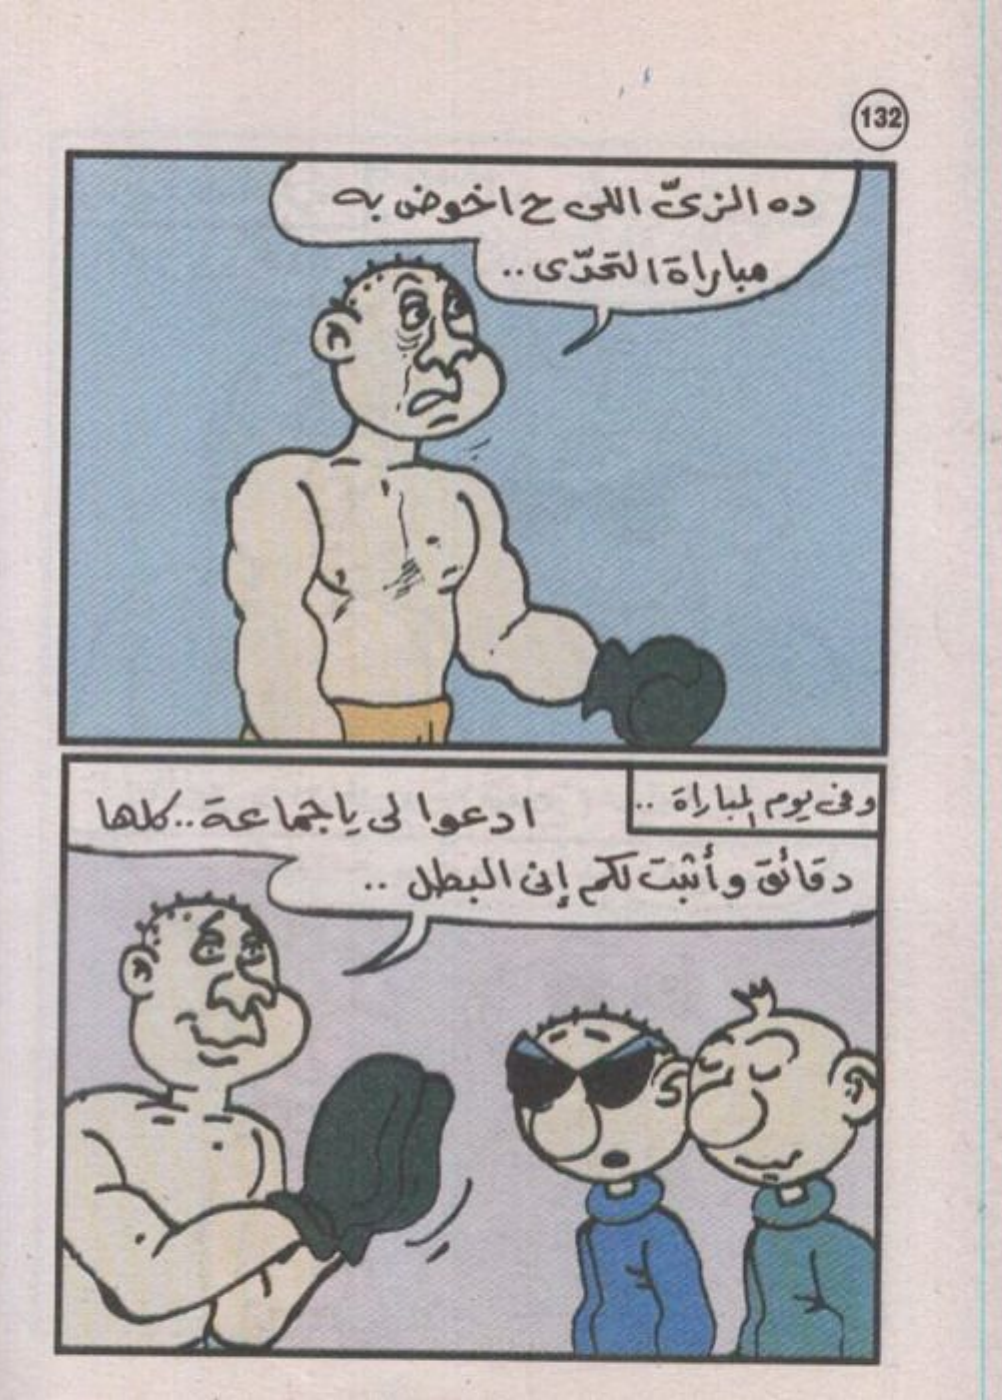 132
ده الزىّ اللى ح اخوض به
مباراة التحدّى..
وفى يوم المباراة ..
ادعوا لى يا جماعة.. كلها
دقائق وأثبت لكم إنى البطل ..